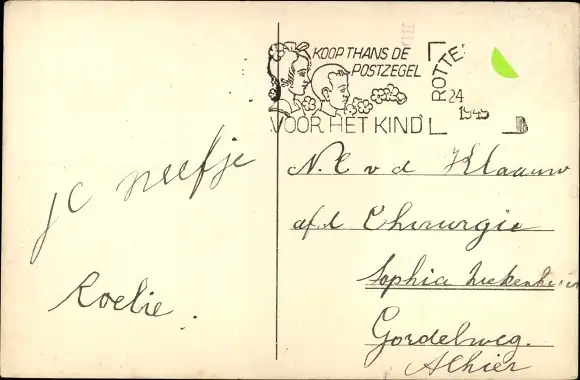 KOOP THANS DE
POSTZEGEL
VOOR HET KIND
ROTTE
24
1945
je neefje
Roelie.
N. C v d Klaauw
afd Chirurgie
Sophia Ziekenhuis
Gordelweg.
Alhier